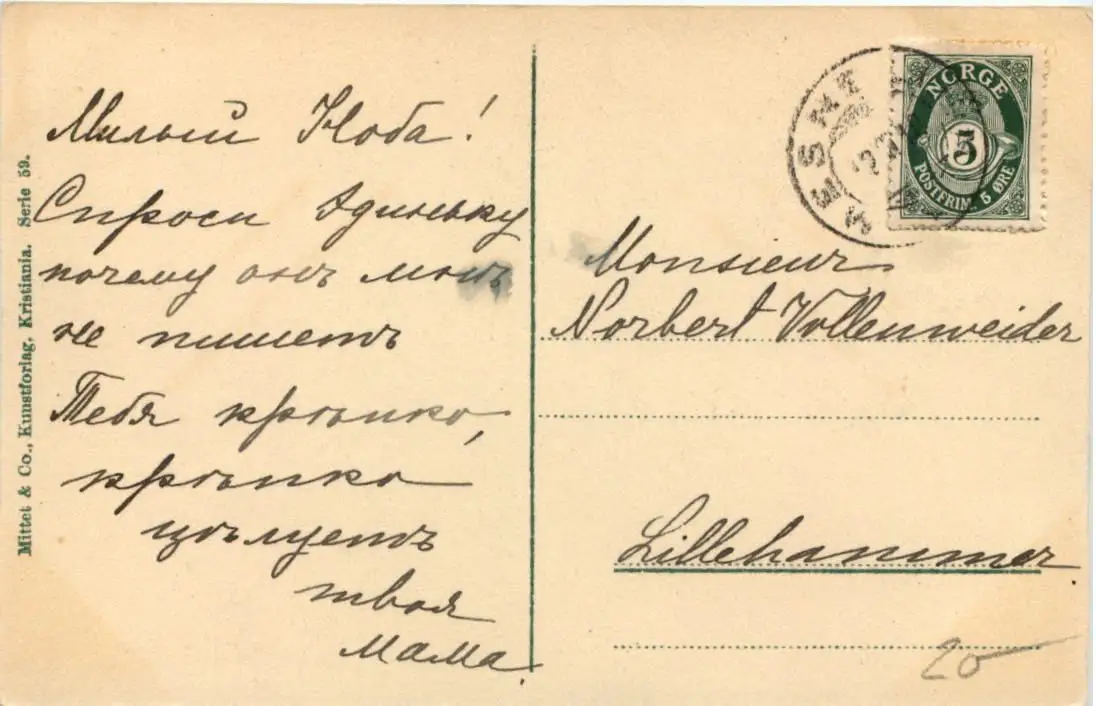 Милый Ноба!
Спроси Адиньку
почему онъ мнѣ
не пишетъ
Тебя крѣпко,
крѣпко
цѣлуетъ
твоя
мама
Mittet & Co., Kunstforlag, Kristiania. Serie 59.
NORGE
5
POSTFRIM. 5 ØRE
Monsieur
Norbert Vollenweider
Lillehammer
20